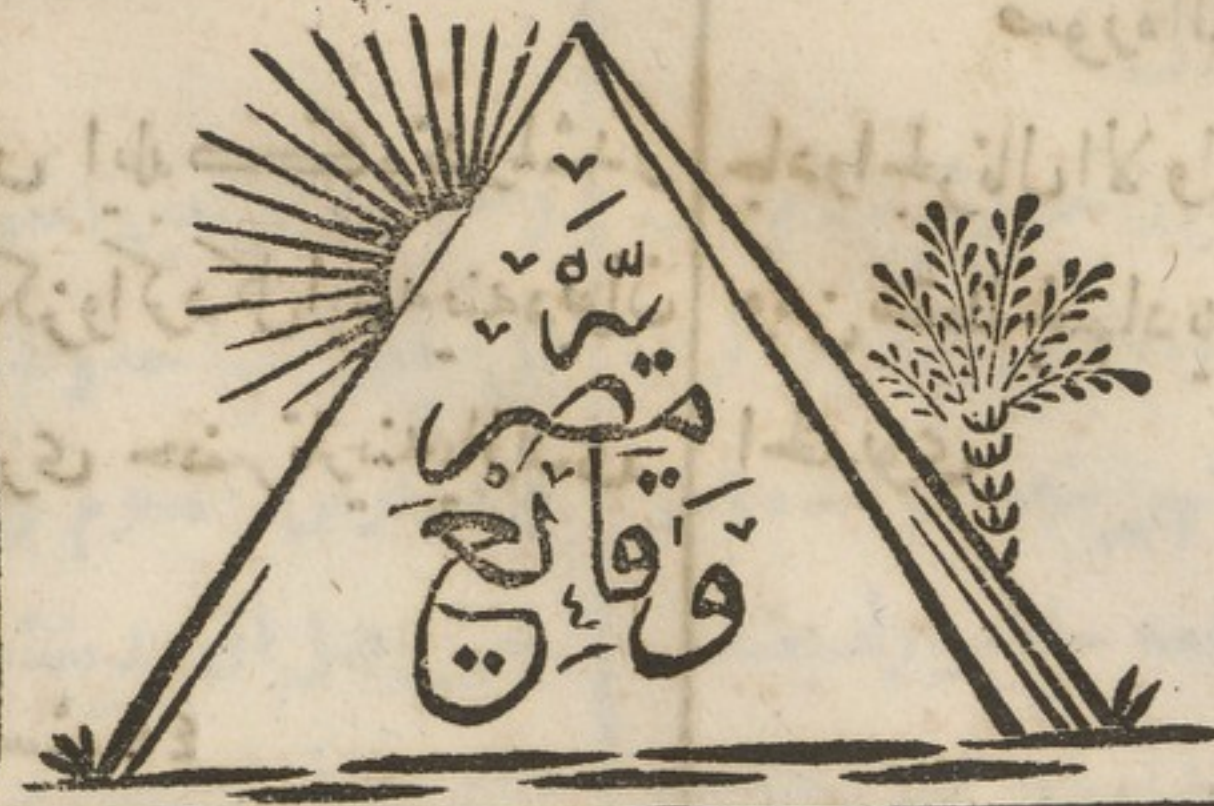 وَقَايع
مصريّه